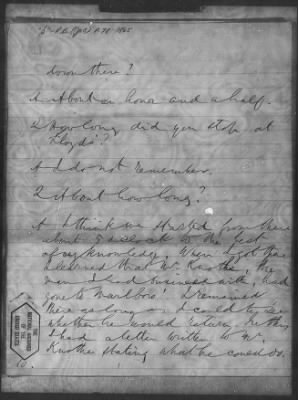 down there?
A About an hour and a half.
Q How long did you stop at
Lloyds?
A I do not remember.
Q About how long?
A I think we started from there
about o'clock to the best
of my knowledge. When I got there
I learned that Mr. Knothe, the
man I had business with, had
gone to Marlboro'. I remained
there as long as I could to see
whether he would return.
I had a letter written to Mr.
Knothe stating what he could do.
NATIONAL ARCHIVES
OF THE
UNITED STATES